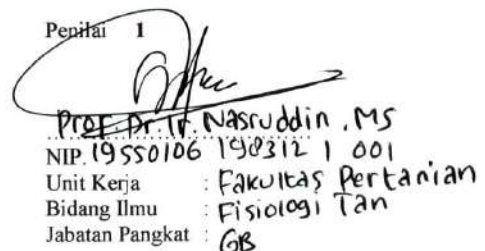 Penilai 1
Prof. Dr. Ir. Nasruddin, MS
NIP. 19550106 198312 1 001
Unit Kerja : Fakultas Pertanian
Bidang Ilmu : Fisiologi Tan
Jabatan Pangkat : GB